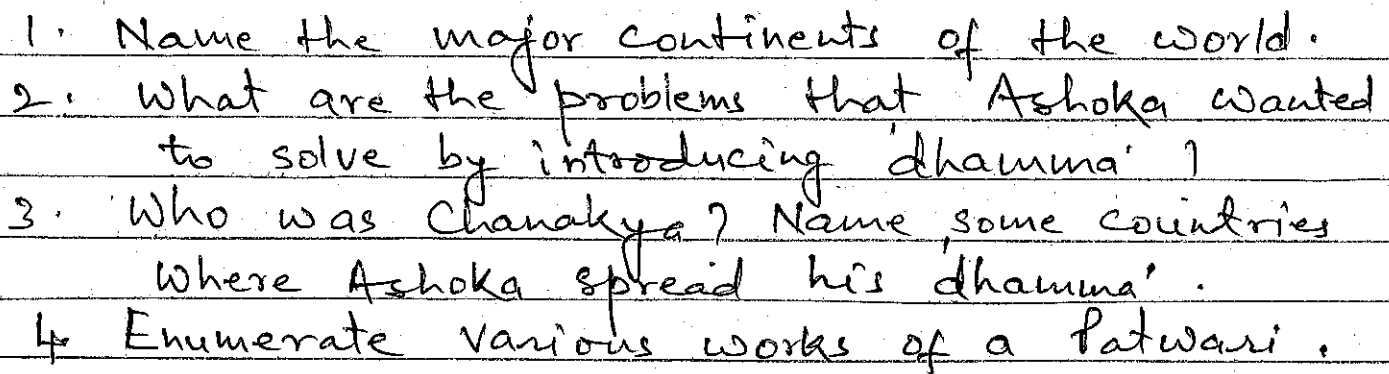 1. Name the major continents of the world.
2. What are the problems that Ashoka wanted
to solve by introducing 'dhamma' ?
3. Who was Chanakya? Name some countries
where Ashoka spread his 'dhamma'.
4 Enumerate various works of a Patwari.